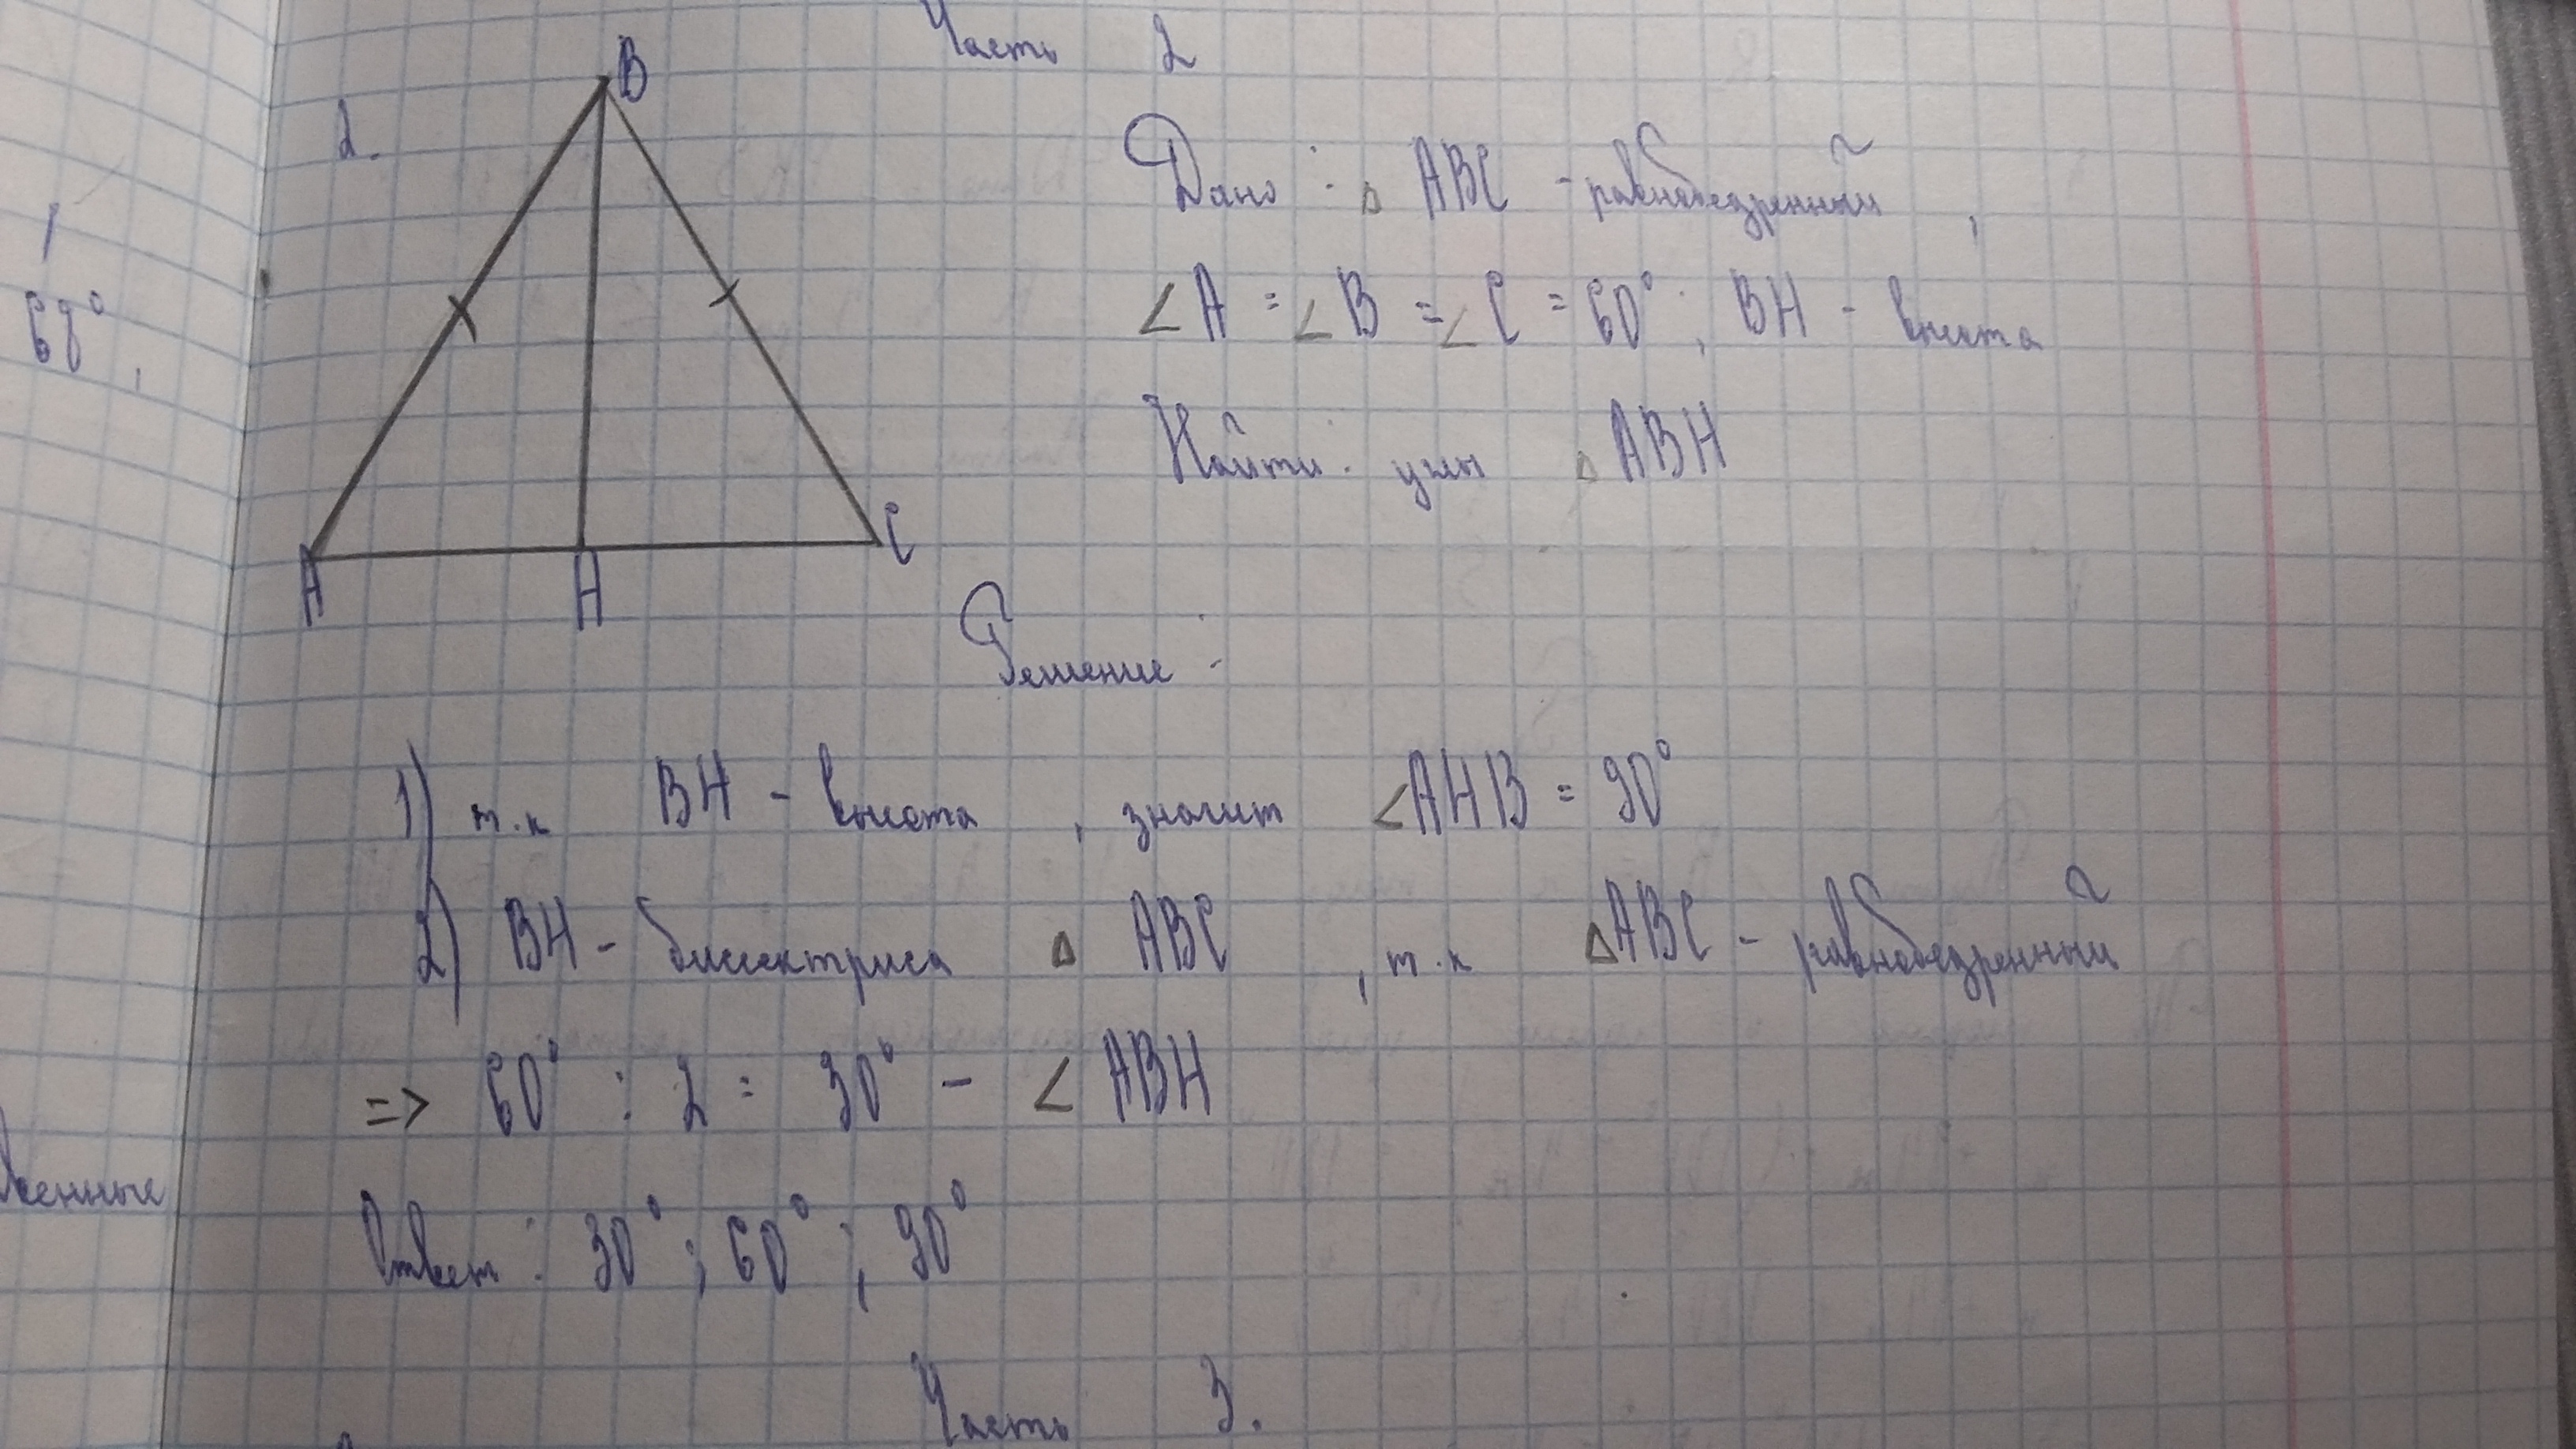 Часть 2
2.
B
A
H
C
Дано: △ ABC - равнобедренный,
∠A = ∠B = ∠C = 60°; BH - высота
Найти: углы △ ABH
Решение:
1) т.к BH - высота, значит ∠AHB = 90°
2) BH - биссектриса △ ABC, т.к △ABC - равнобедренный
=> 60° : 2 = 30° - ∠ ABH
Ответ: 30°; 60°; 90°
Часть 3.
68°,